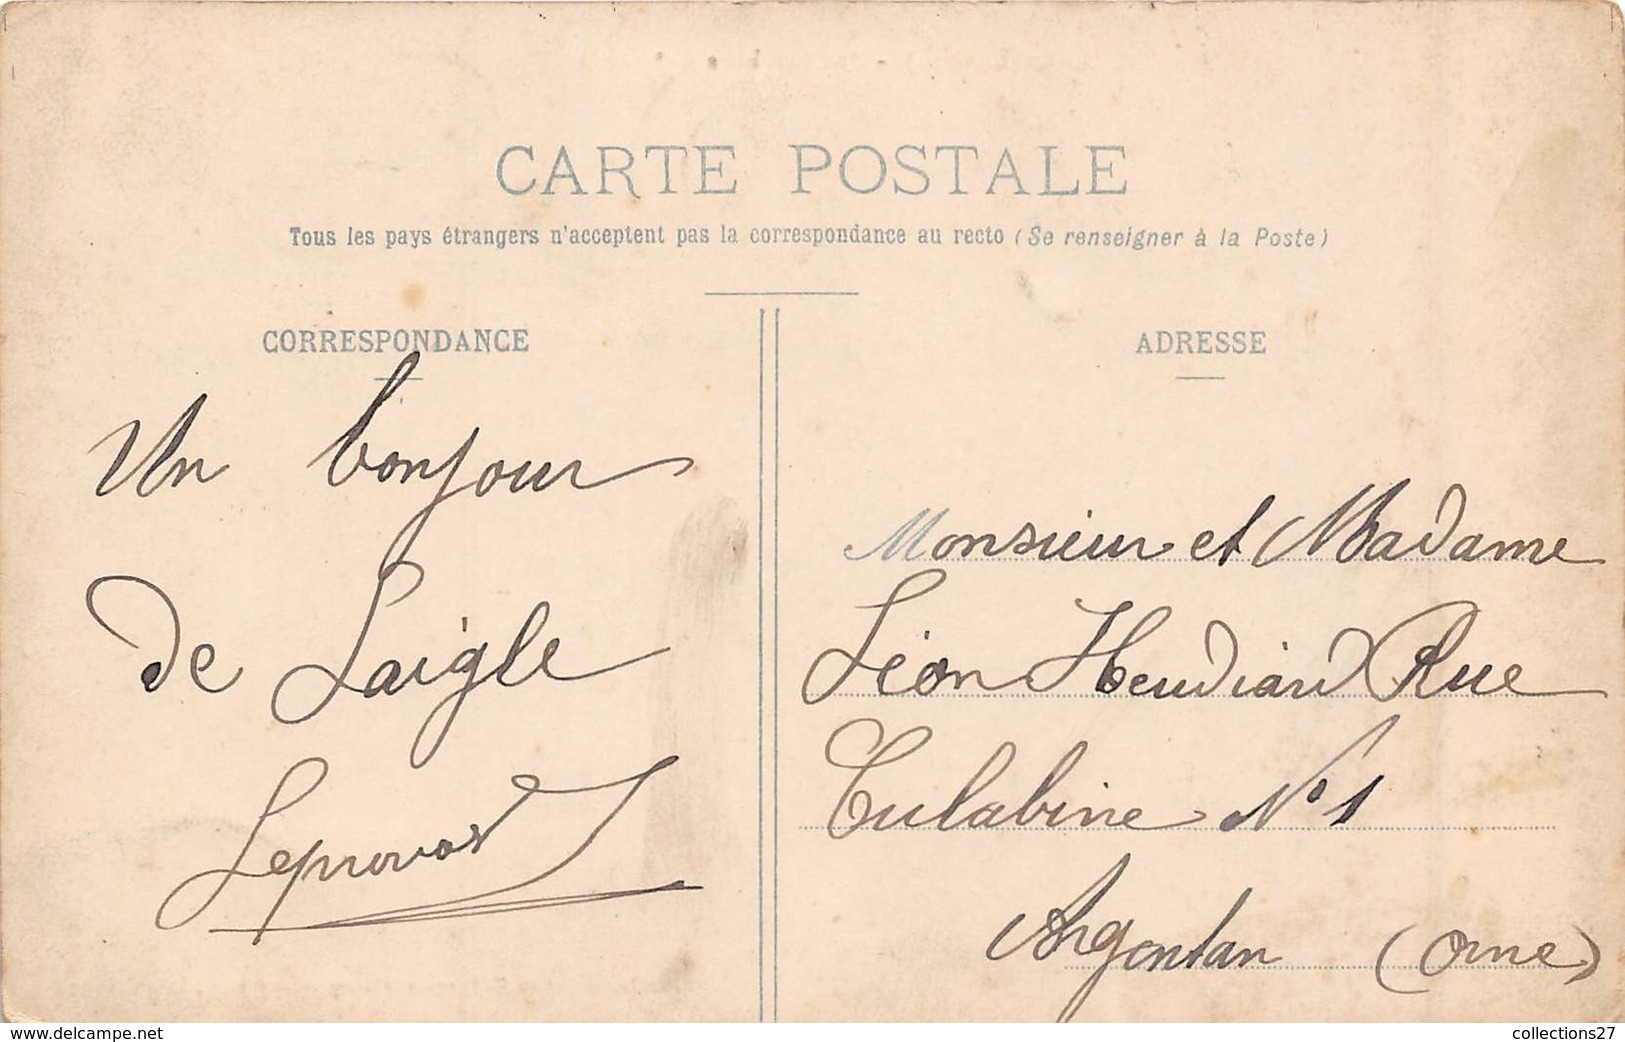 CARTE POSTALE
Tous les pays étrangers n'acceptent pas la correspondance au recto (Se renseigner à la Poste)
CORRESPONDANCE
Un bonjour
de Laigle
Leprovost
ADRESSE
Monsieur et Madame
Léon Heudiard Rue
Eulabine N°1
Argentan (Orne)
www.delcampe.net
collections27